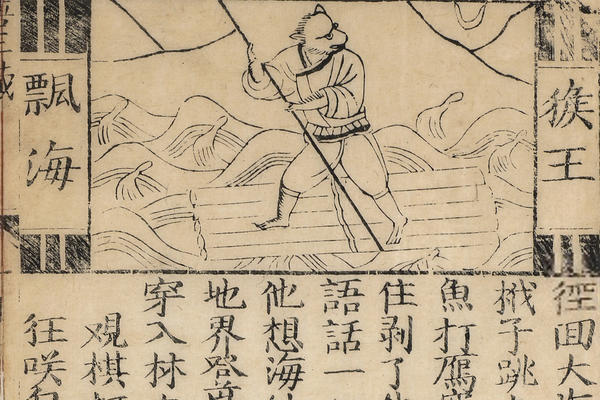 猴王
飄海
徑囬大海
栰子跳
魚打鴈
住剥了
語話一
他想海
地界登
穿入林
觀棋
狂咲